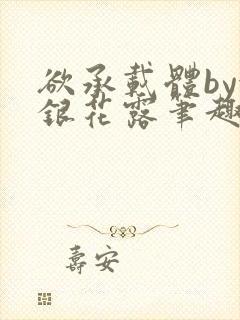 欲承载體by
銀花露筆趣
壽安